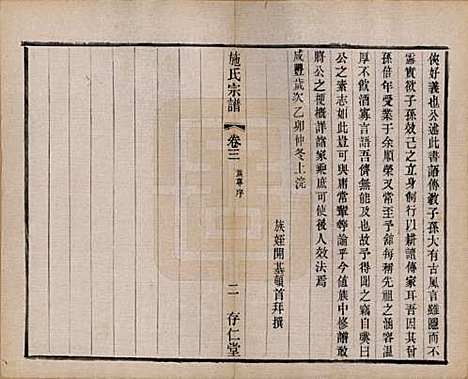 俠好義也公述此書語傳敎子孫大有古風言雖隱而不
露實欲子孫效己之立身飭行以耕讀傳家耳吾因其
孫倍年受業于余順榮又常至予舘每稱先祖之忠
厚不飲酒寡言語吾儕無能及于此竊自嘆曰
公之素志如此豈可與庸常輩幷論乎今値族中修譜敢
將公之梗槪詳諸家乘庶可使後人效法焉
咸豐歲次乙卯仲冬上浣
族姪開基頓首拜撰
施氏宗譜
卷三
序
二
存仁堂